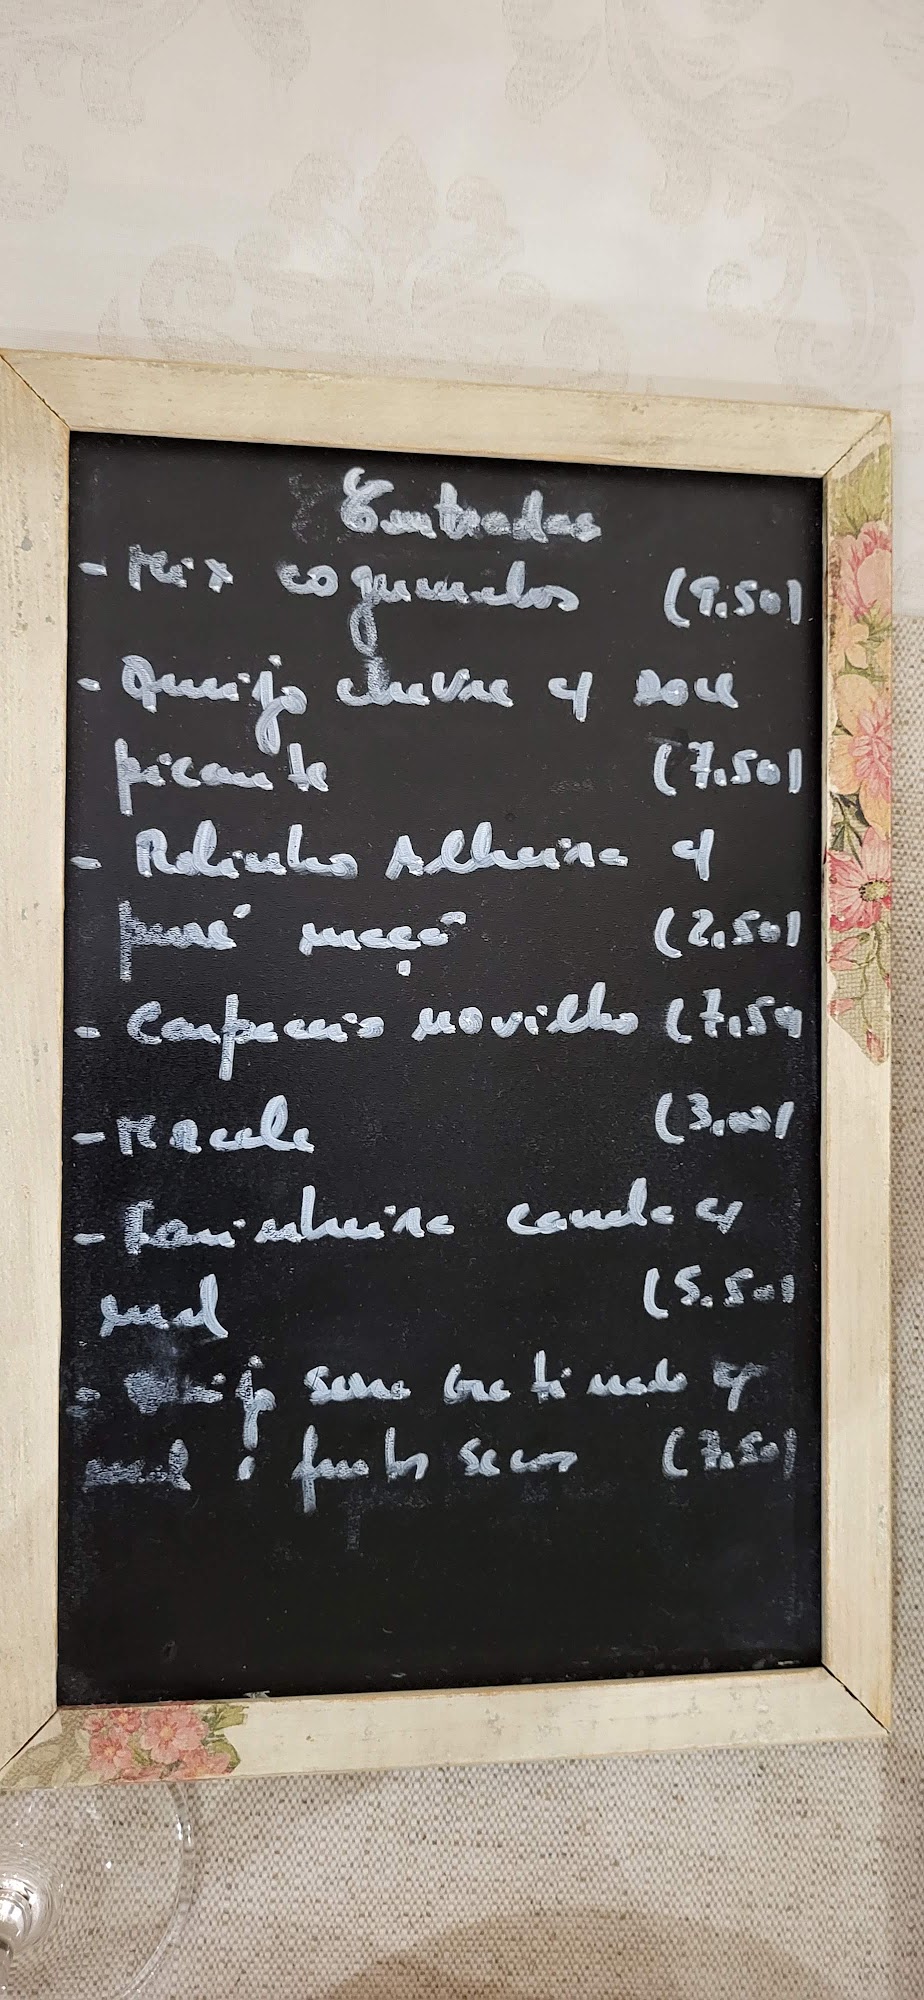 Entradas
- Mix cogumelos (9.50)
- Queijo chevre c/ doce
picante (7.50)
- Rolinho Alheira c/
puré maçã (2,50)
- Carpaccio novilho (7,50
- (3,00)
- Farinheira canela c/
mel (5.50)
- Queijo serra gratinado c/
mel e frutos secos (7.50)